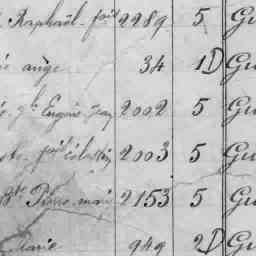 Raphaël 2289 5 Gu
ange 34 1D Gu
Eugène 2002 5 Gu
Célestin 2003 5 Gu
Pierre marie 2153 5 Gu
Marie 949 2D Gu